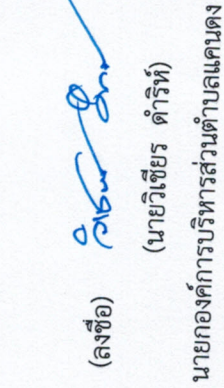 (ลงชื่อ)
(นายวิเชียร ดำริห์)
นายกองค์การบริหารส่วนตำบลแคนดง